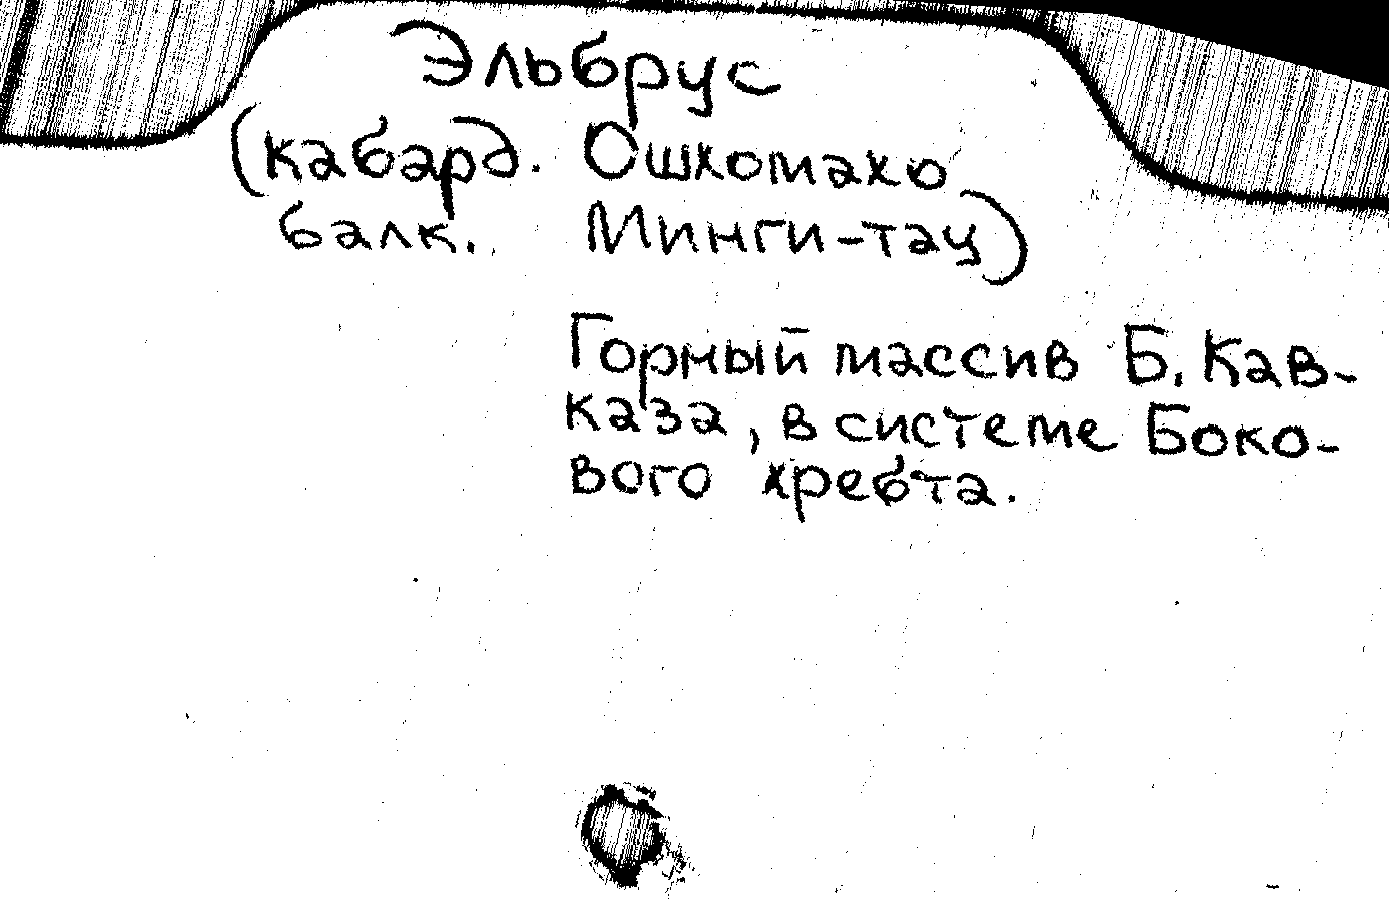 Эльбрус
(кабард. Ошхомахо
балк. Минги-тау)
Горный массив Б. Кав-
каза, в системе Боко-
вого хребта.